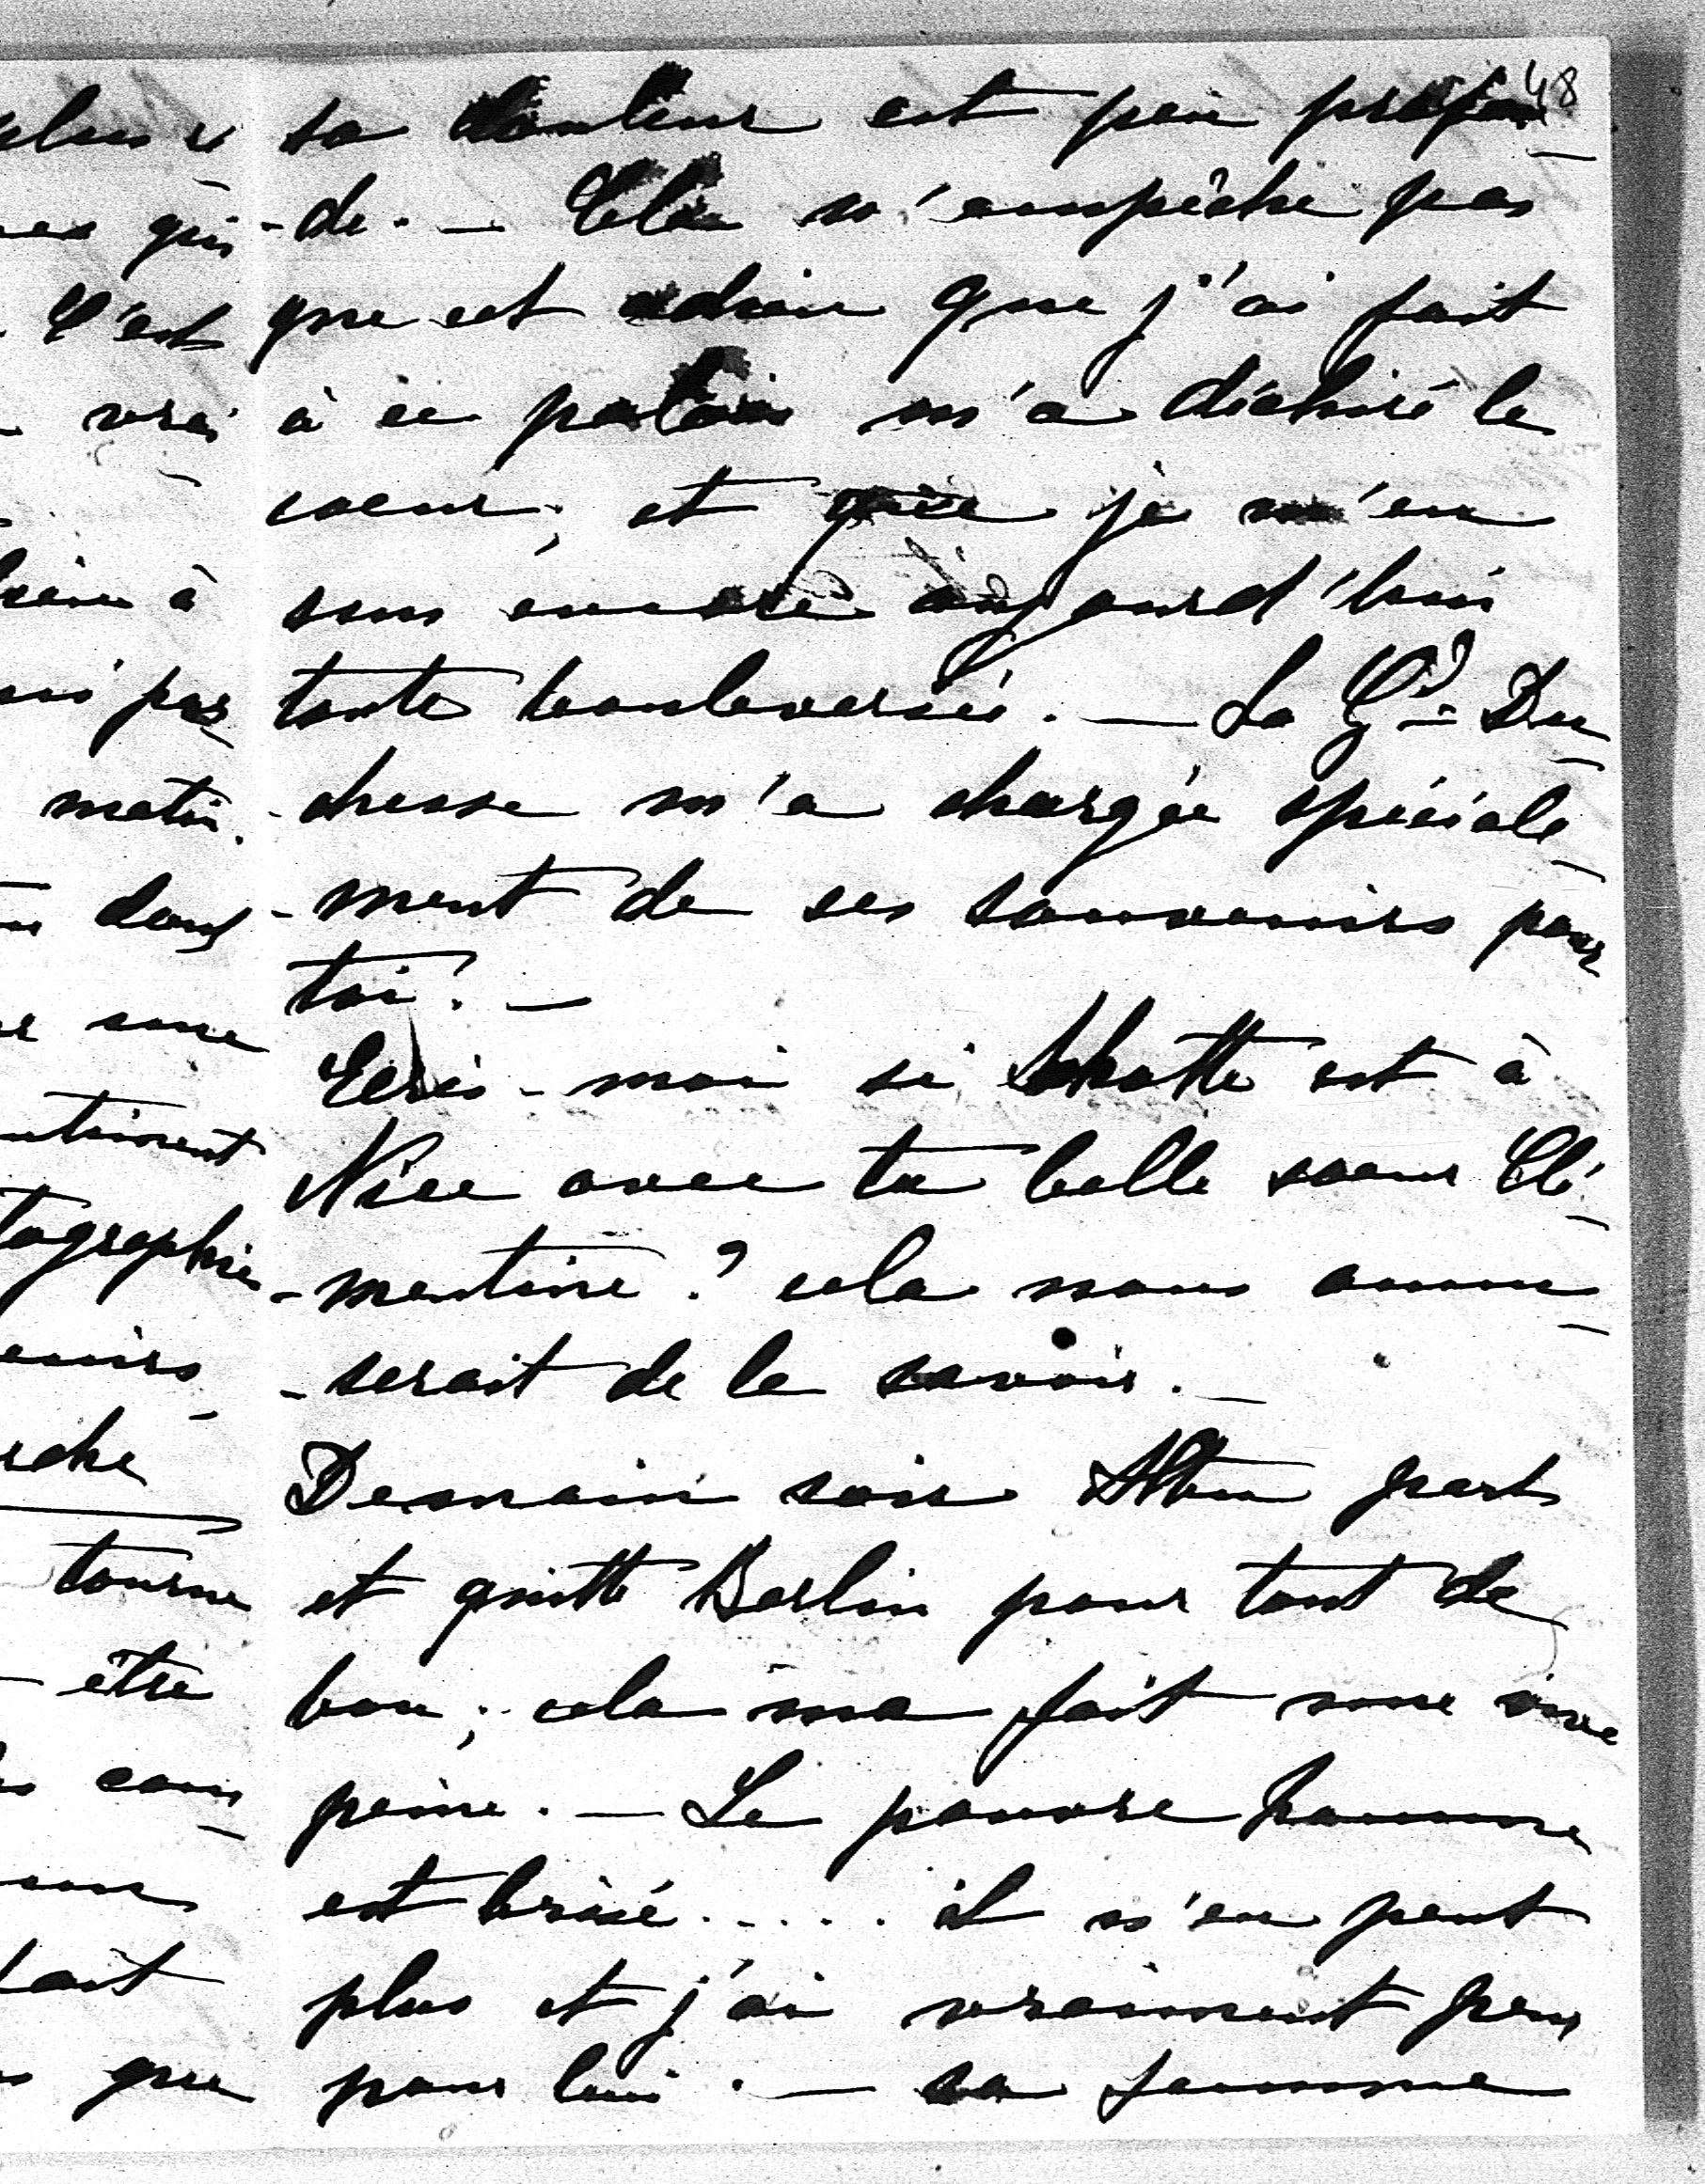 48
sa douleur est peu profon
-de. — Cela n'empêche pas
que cet adieu que j'ai fait
à ce palais m'a déchiré le
coeur, et que je m'en
sens encore aujourd'hui
toute bouleversée. — La Gde Du
-chesse m'a chargée spéciale
-ment de ses souvenirs pour
toi. —
Ecris-moi si Schotte est à
Nice avec ta belle soeur Clé
-mentine? cela nous amu
-serait de le savoir. —
Demain soir part
et quitte Berlin pour tout de
bon; cela ma fait une vive
peine. — Le pauvre homme
est brisé..... il n'en peut
plus et j'ai vraiment peur
pour lui. — sa femme